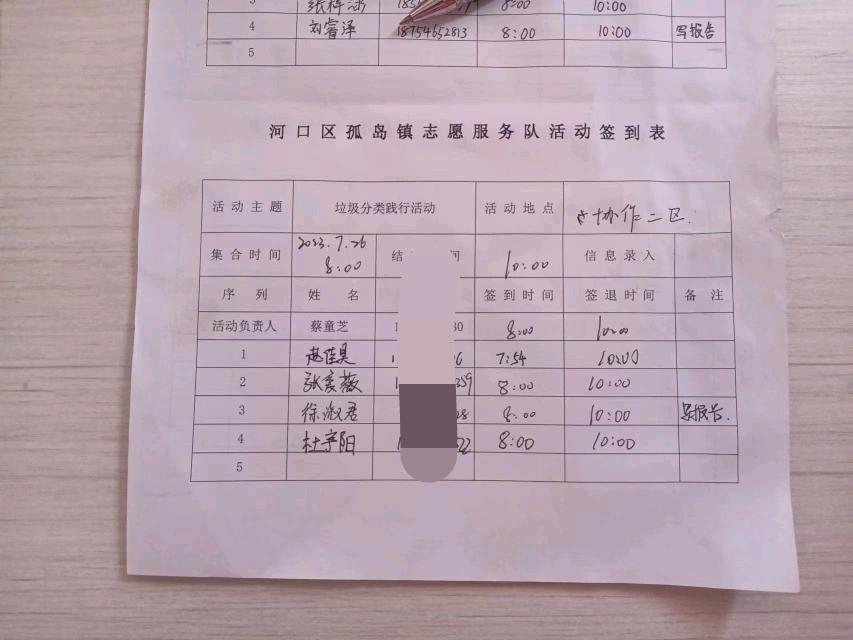 8:00 10:00
4 刘睿泽 18754652813 8:00 10:00 写报告
5
河口区孤岛镇志愿服务队活动签到表
活动主题 垃圾分类践行活动 活动地点 协作二区.
集合时间 2023.7.26 8:00 结 间 10:00 信息录入
序列 姓名 签到时间 签退时间 备注
活动负责人 蔡童芝 1 30 8:00 10:00
1 赵佳昊 6 7:54 10:00
2 张彦薇 1 359 8:00 10:00
3 徐淑君 28 8:00 10:00 写报告.
4 杜宇阳 1 522 8:00 10:00
5